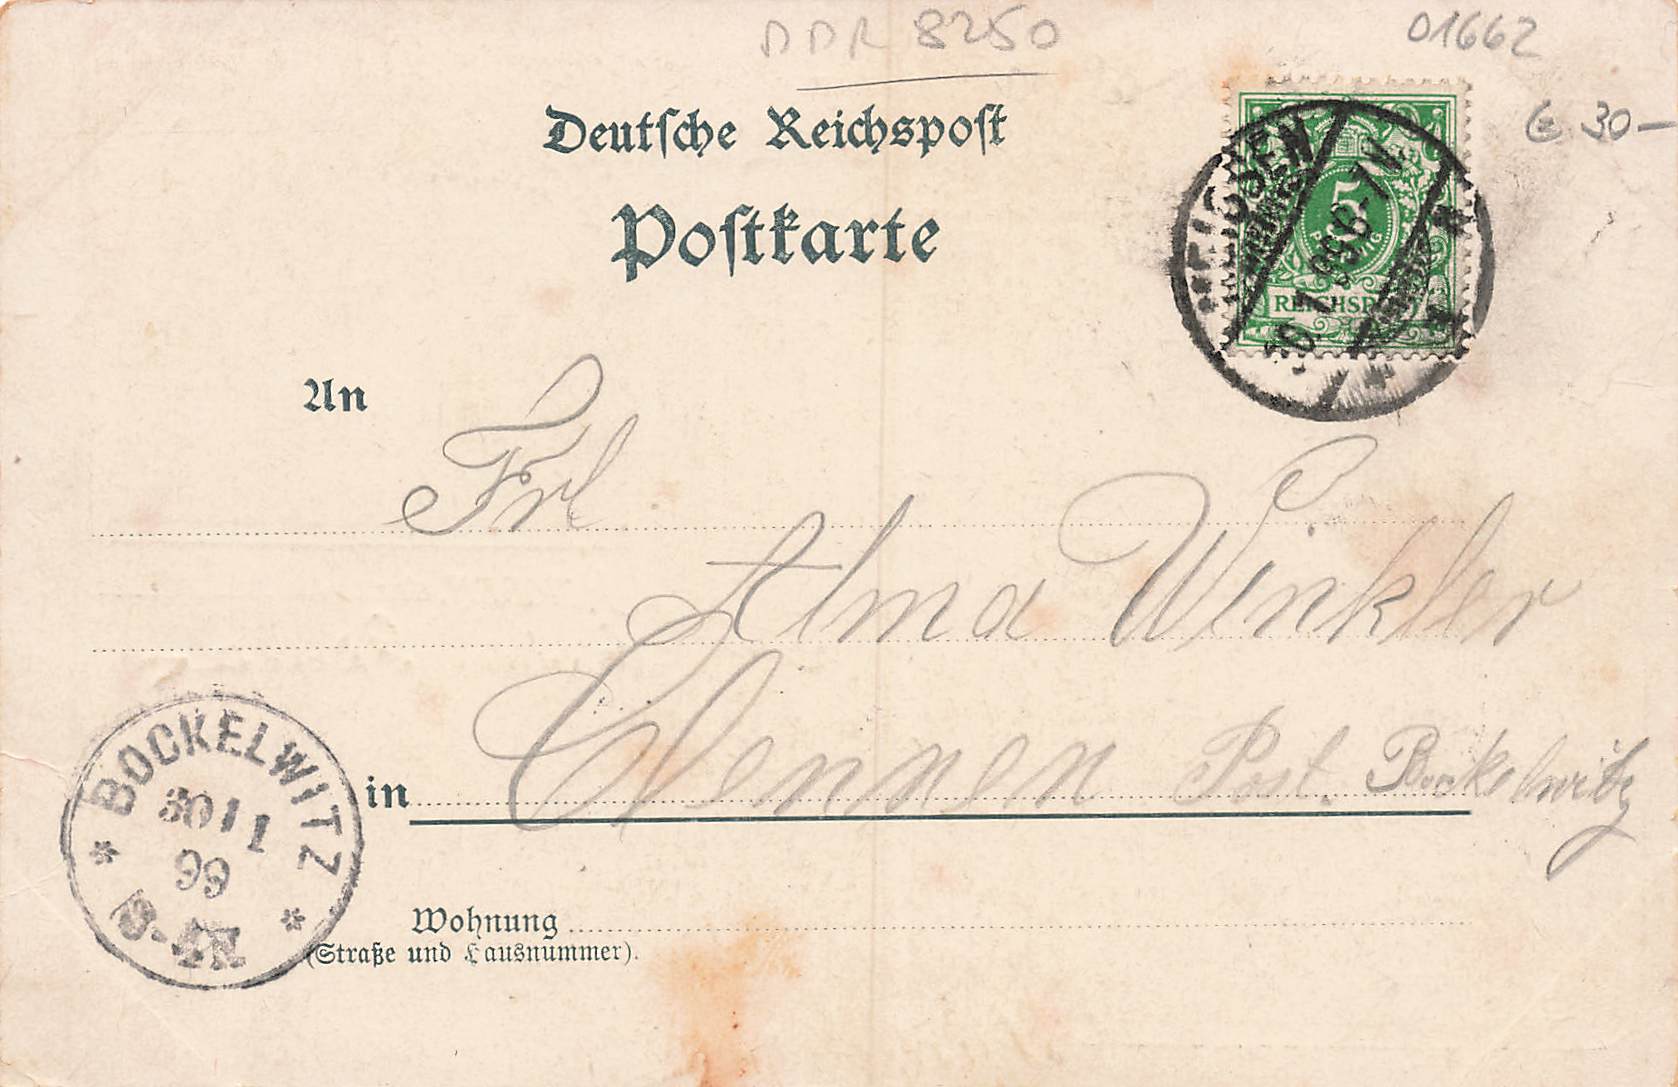 DDR 8250
01662
€ 30—
Deutsche Reichspost
Postkarte
MEISSEN
5
PFENNIG
REICHSPOST
30.1.99.6-7 N
An
Frl
Alma Winkler
in Clennen Post. Bockelwitz
BOCKELWITZ
30 1 1
99
Wohnung
(Straße und Hausnummer).